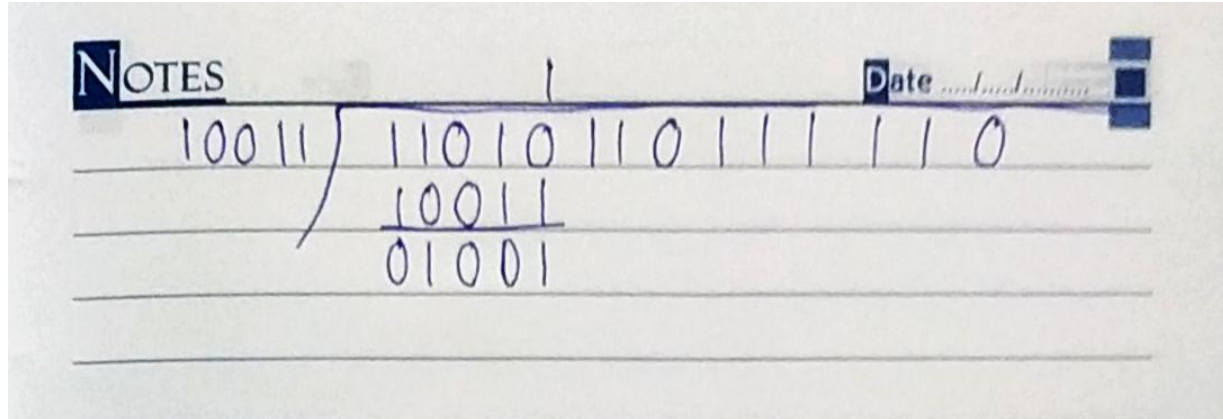 NOTES 1 Date ..../..../..........
10011 ) 11010110111110
10011
01001